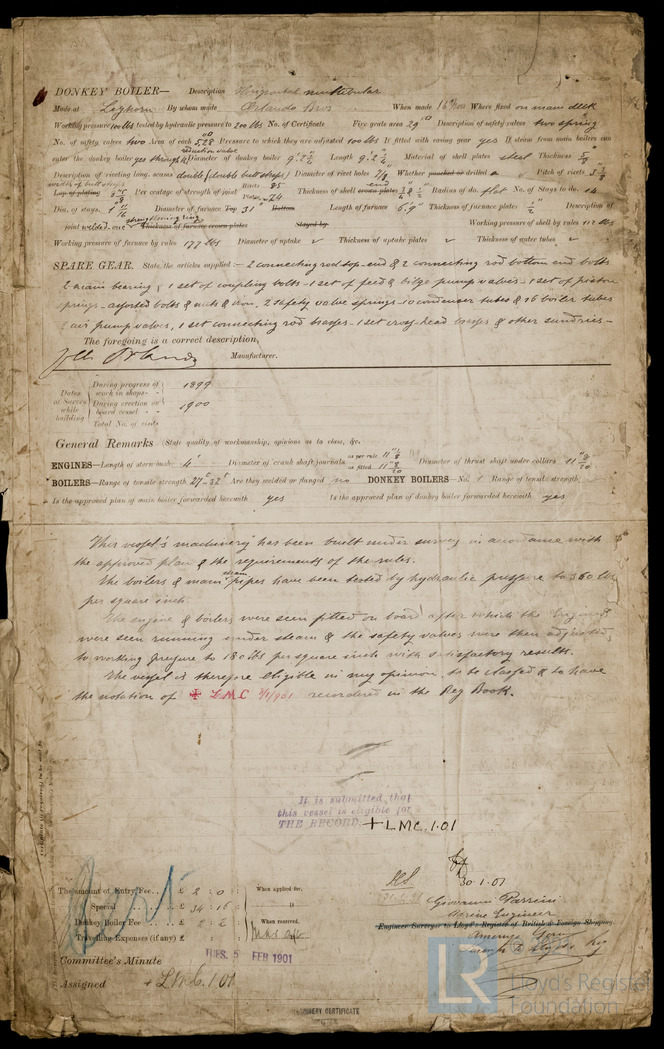 DONKEY BOILER— Description Horizontal multitubular
Made at Leghorn By whom made Orlando Bros When made 16 Where fixed on main deck
Working pressure 100 lbs tested by hydraulic pressure to 200 lbs No. of Certificate Fire grate area 29 Description of safety valves two spring
No. of safety valves two Area of each 5.28 Pressure to which they are adjusted 100 lbs If fitted with easing gear yes If steam from main boilers can
enter the donkey boiler yes through reduction valve Diameter of donkey boiler 9' 2½ Length 9' 2½" Material of shell plates steel Thickness
Description of riveting long. seams double (double butt straps) Diameter of rivet holes 7/8 Whether punched or drilled Pitch of rivets
width of butt straps
Lap of plating Per centage of strength of joint Rivets 85 Plates 74 Thickness of shell crown plates end Radius of do. flat No. of Stays to do. 14
Dia. of stays. Diameter of furnace Top 31" Bottom Length of furnace 6' 9" Thickness of furnace plates ½" Description of
joint welded - one strengthening ring Thickness of furnace crown plates Stayed by Working pressure of shell by rules 112 lbs
Working pressure of furnace by rules 177 lbs Diameter of uptake Thickness of uptake plates Thickness of water tubes
SPARE GEAR. State the articles supplied:— 2 connecting rod top-end & 2 connecting rod bottom end bolts
2 main bearing, 1 set of coupling bolts - 1 set of feed & bilge pump valves - 1 set of piston
springs - assorted bolts & nuts & iron, 2 safety valve springs - 10 condenser tubes & 16 boiler tubes
air pump valves, 1 set connecting rod brasses - 1 set cross-head brasses & other sundries -
The foregoing is a correct description,
Orlando Manufacturer.
Dates of Survey while building
During progress of work in shops - - 1899
During erection on board vessel - - - 1900
Total No. of visits
General Remarks (State quality of workmanship, opinions as to class, &c.
ENGINES—Length of stern bush 4' Diameter of crank shaft journals as per rule as fitted Diameter of thrust shaft under collars
BOILERS—Range of tensile strength 27-32 Are they welded or flanged no DONKEY BOILERS— No. 1 Range of tensile strength
Is the approved plan of main boiler forwarded herewith yes Is the approved plan of donkey boiler forwarded herewith yes
This vessel's machinery has been built under survey in accordance with
the approved plan & the requirements of the rules.
The boilers & main steam pipes have been tested by hydraulic pressure to 360 lbs
per square inch.
The engine & boilers were seen fitted on board after which the engines
were seen running under steam & the safety valves were then adjusted
to working pressure to 180 lbs per square inch with satisfactory results.
The vessel is therefore eligible in my opinion to be classed & to have
the notation of ✠ LMC 1/1901 recorded in the Reg Book.
It is submitted that
this vessel is eligible for
THE RECORD. + LMC. 1.01
30.1.01
The amount of Entry Fee . . £ 2 : 0 : When applied for,
Special . . £ 34 : 16 :
Donkey Boiler Fee . . £ 2 : 2 : When received,
Travelling Expenses (if any) £ : :
Giovanni Parrini
Marine Engineer
Engineer Surveyor to Lloyd's Register of British & Foreign Shipping.
Committee's Minute TUES. 5 FEB 1901
Assigned + LMC. 1.01
MACHINERY CERTIFICATE
LR
Lloyd's Register
Foundation